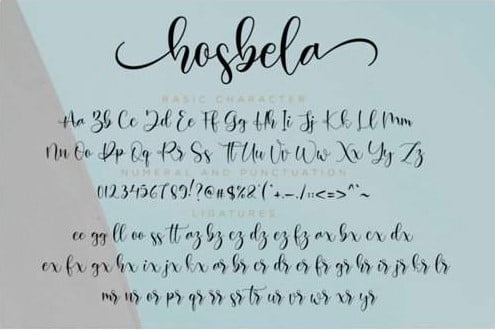 hosbela
BASIC CHARACTER
Aa Bb Cc Dd Ee Ff Gg Hh Ii Jj Kk Ll Mm
Nn Oo Pp Qq Rr Ss Tt Uu Vv Ww Xx Yy Zz
NUMERAL AND PUNCTUATION
0123456789!?@#$%&'(*+.-./:;<=>^`~
LIGATURES
ee gg ll oo ss tt az bz cz dz ez fz ax bx cx dx
ex fx gx hx ix jx kx ar br cr dr er fr gr hr ir jr kr lr
mr nr or pr qr rr sr tr ur vr wr xr yr